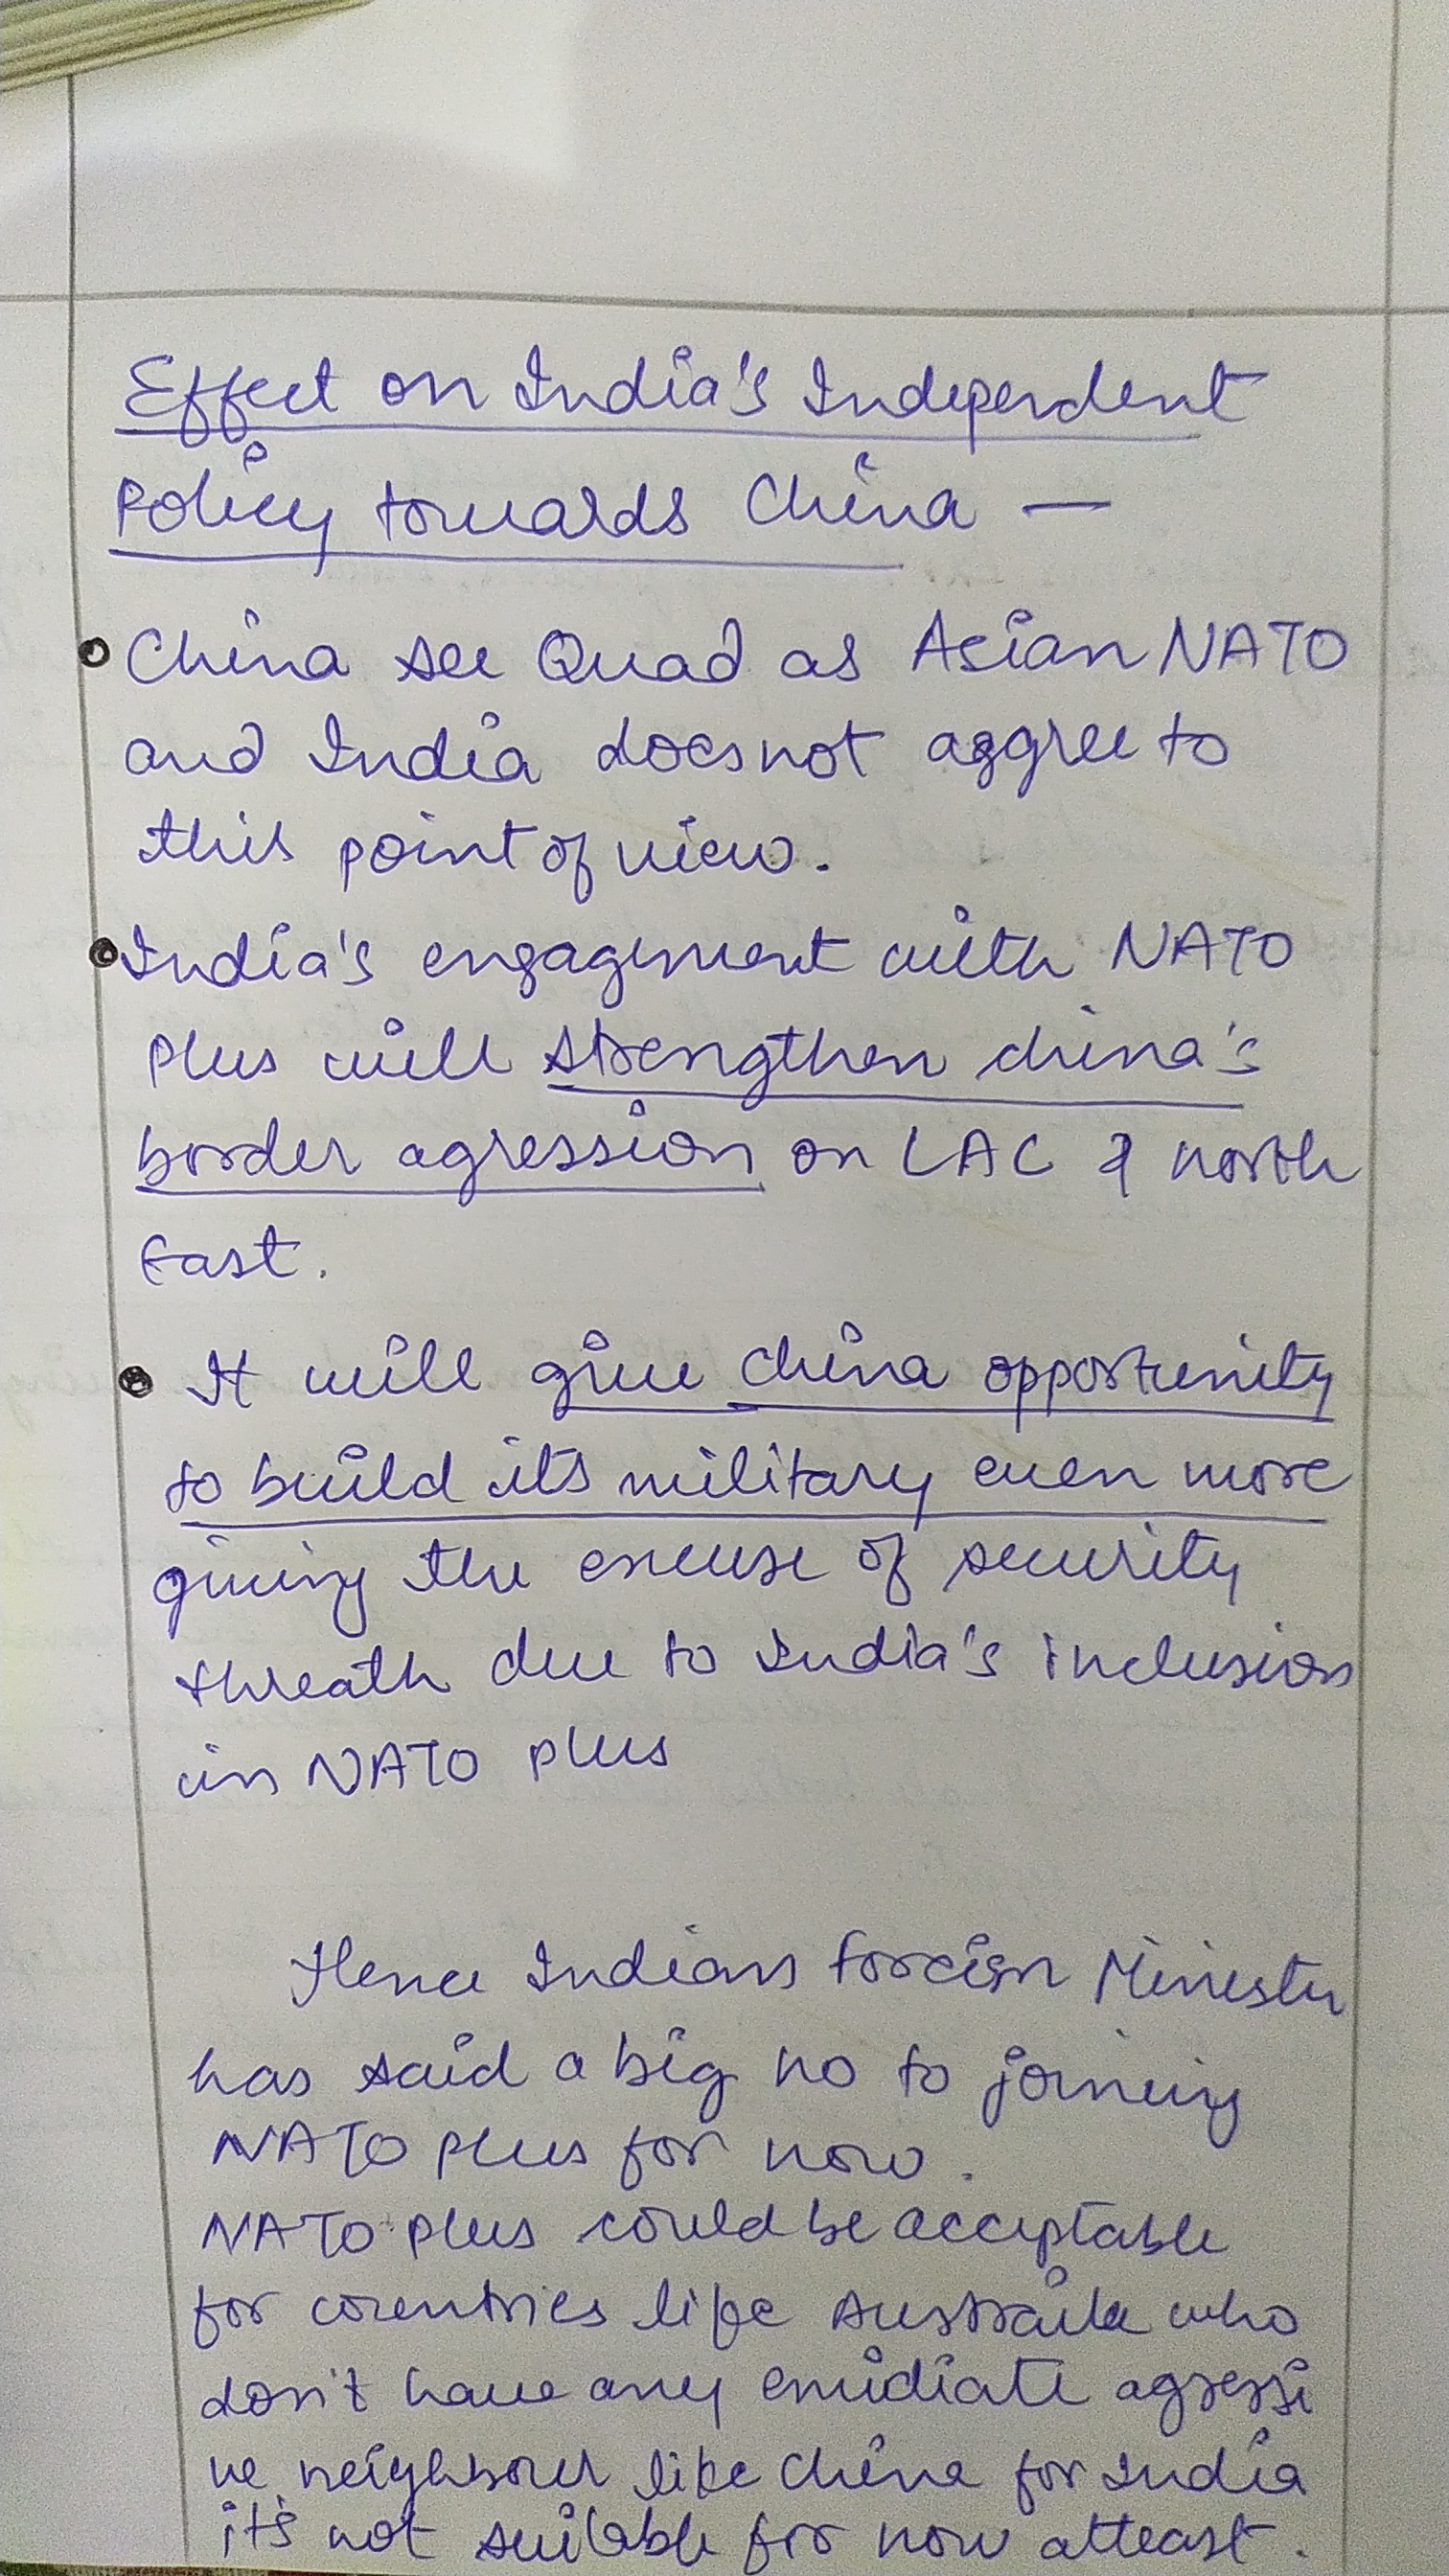 Effect on India's Independent
Policy towards China —
China see Quad as Asian NATO
and India does not aggree to
this point of view.
India's engagement with NATO
plus will strengthen china's
border agression on LAC & north
East.
It will give china opportunity
to build it's military even more
giving the excuse of security
threath due to India's inclusion
in NATO plus
Hence Indians foreign Minister
has said a big no to joining
NATO plus for now.
NATO plus could be acceptable
for countries like Austraila who
don't have any emidiate agressi
ve neighbour like China for India
it's not suilable for now atleast.